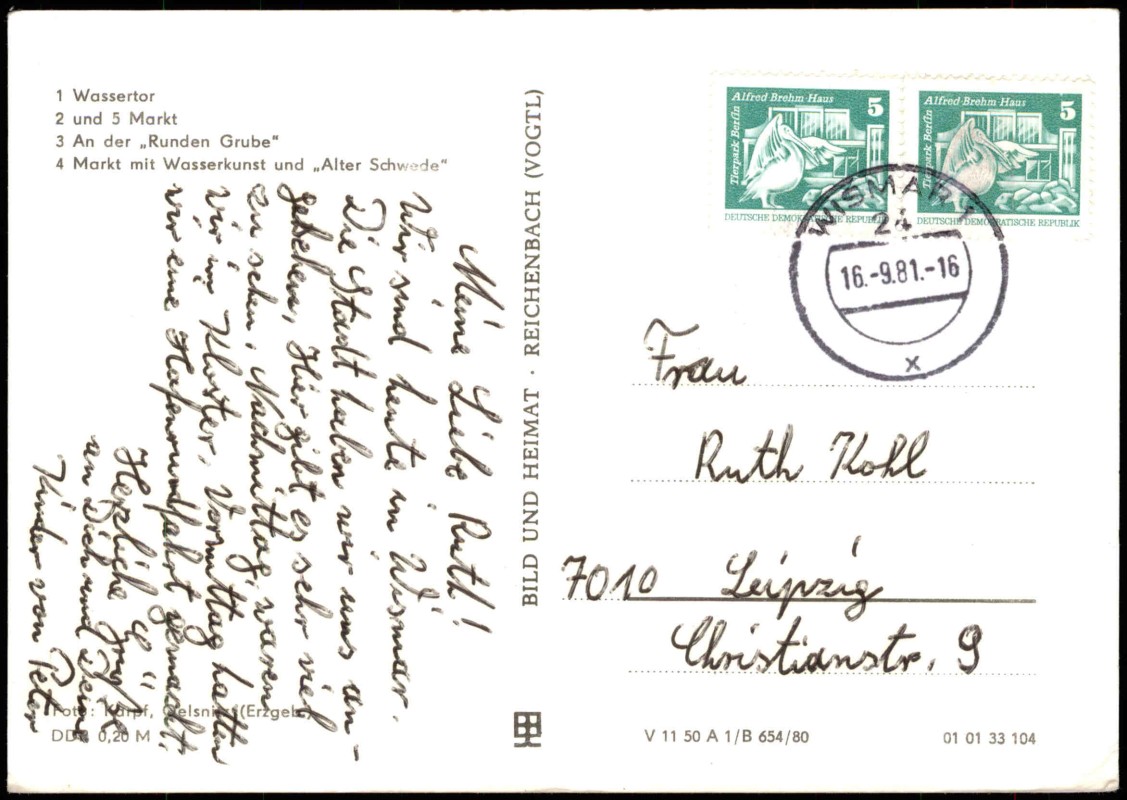 1 Wassertor
2 und 5 Markt
3 An der „Runden Grube“
4 Markt mit Wasserkunst und „Alter Schwede“
Meine Liebe Ruth!
Wir sind heute in Wismar.
Die Stadt haben wir uns an-
gesehen, Hier gibt es sehr viel
zu sehen, Nachmittag waren
wir im Kloster, Vormittag hatten
wir eine Hafenrundfahrt gemacht.
Herzliche Grüße
an Dich und Deine
Kinder von Peter
Foto: Karpf, Oelsnitz (Erzgeb.)
DDR 0,20 M
BILD UND HEIMAT · REICHENBACH (VOGTL)
Alfred Brehm-Haus
5
Tierpark Berlin
DEUTSCHE DEMOKRATISCHE REPUBLIK
Alfred Brehm-Haus
5
Tierpark Berlin
DEUTSCHE DEMOKRATISCHE REPUBLIK
WISMAR 1
24
16.-9.81.-16
x
Frau
Ruth Kohl
7010 Leipzig
Christianstr. 9
V 11 50 A 1/B 654/80
01 01 33 104